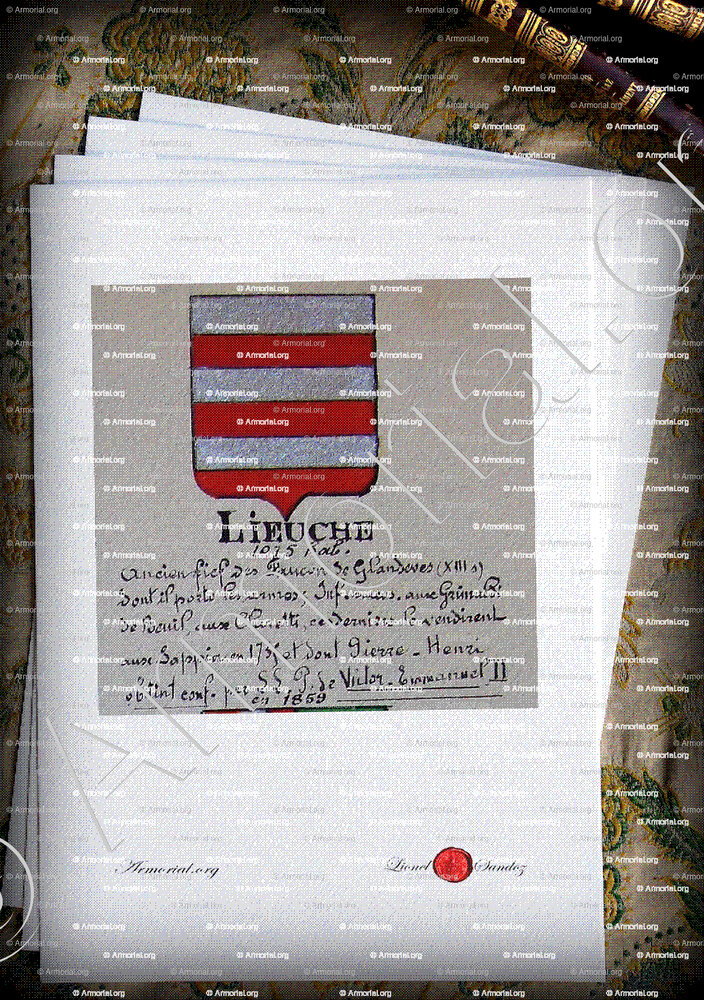 LiEUCHE
1075 hab.
Ancien fief des de Glandeves (XIII s)
dont il porte les armes; aux Grimaldi
de Beuil, aux Claretti, ce dernier le vendirent
aux en 1735 et dont Pierre-Henri
obtint conf. par de Victor-Emmanuel II
en 1859
Armorial.org
Lionel Sandoz
© Armorial.org